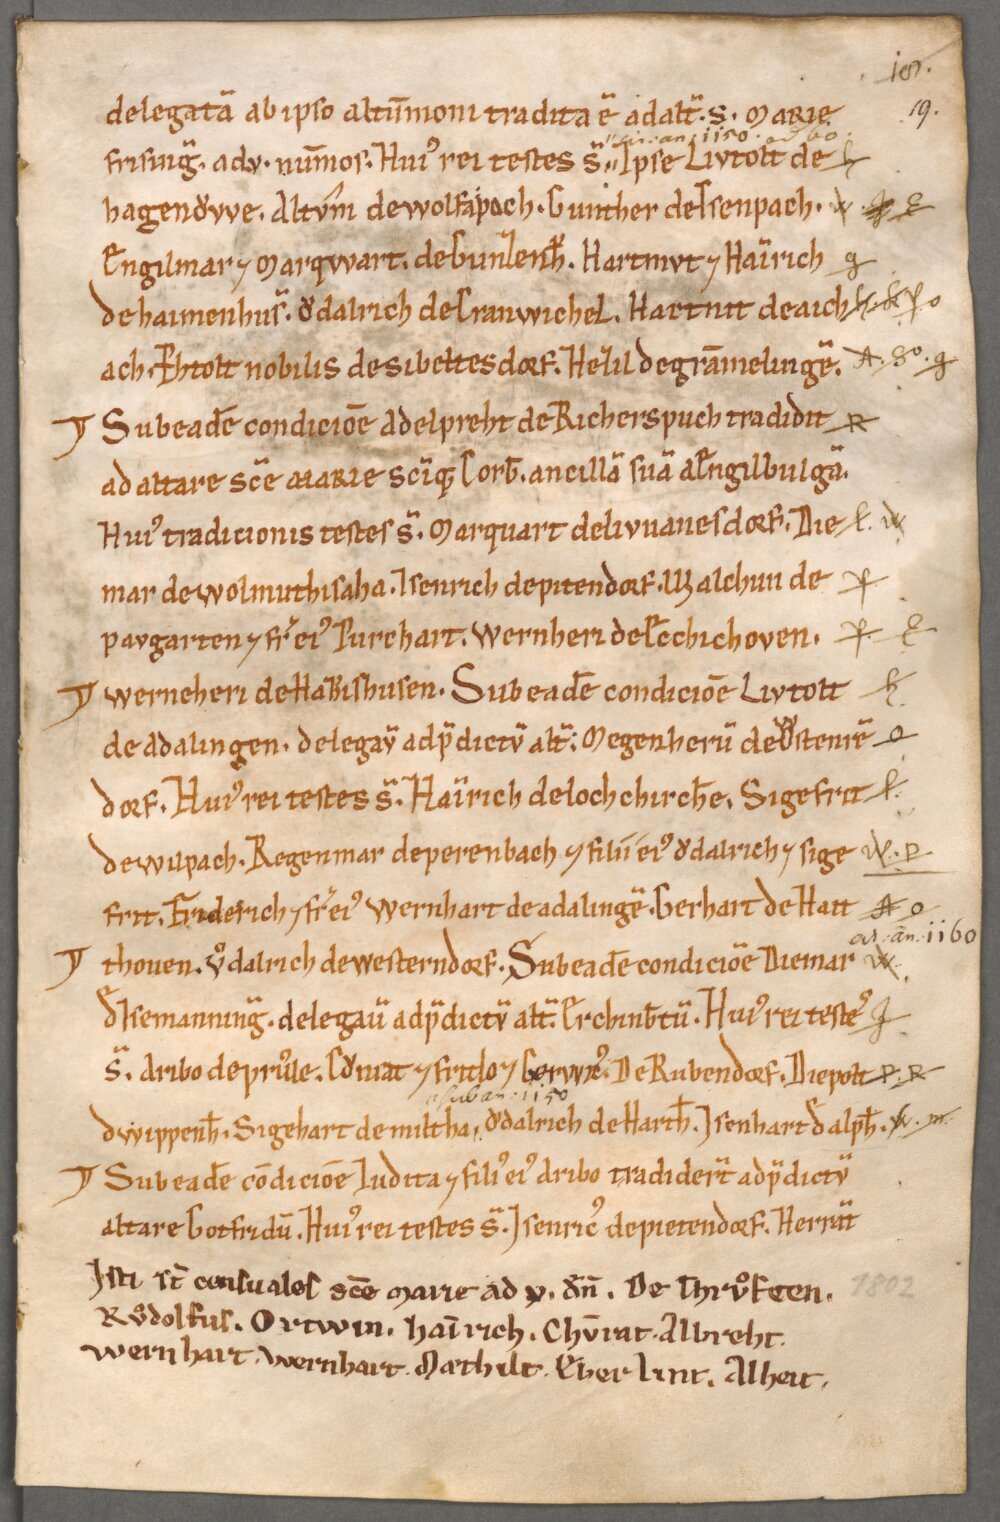 19.
delegatā ab ipso altūmoni tradita ē ad alt̄. S. MARIE
frisinḡ. ad v. num̄os. Hui᾽ rei testes s̄. Ipse Livtolt de
hagenǒvve. Altvm̄ de wolfapach. Gunther de Isenpach.
Engilmar ⁊ Marqvvart. de Hartmvt ⁊ Haīrich
de haimenhus̄. Ǒdalrich de Cranwichel. Hartnit de aich
ach. nobilis de sibeltesdorf. Hezil de grām̄elingē.
Sub eadē condicioē Adelpreht de Richerspuch tradidit
ad altare sc̄e MARIE sc̄iq; Corb̄. ancillā suā Engilbulgā.
Hui᾽ tradicionis testes s̄. Marquart de livuanesdorf. Die
mar de wolmuthisaha. Isenrich de pitendorf. Walchun de
pavgarten ⁊ fr̄ ei᾽ Purchart. Wernheri de Ecchichoven.
Werneheri de Habishusen. Sub eadē condicioē Livtolt
de Adalingen. delegav̄ ad p̄dictv̄ alt̄. Megenherū de Ǒstenrē
dorf. Hui᾽ rei testes s̄. Haīrich de lochchirch̄e. Sigefrit
de wilpach. Regenmar de perenbach ⁊ filii ei᾽ ǒdalrich ⁊ sige
frit. Friderich ⁊ fr̄ ei᾽ Wernhart de adalingē. Gerhart de Hatt
ar. an. 1160
thoven. v̊dalrich de westerndorf. Sub eadē condicioē Diemar
đ Isemanninḡ. delegaū ad p̄dictv̄ alt̄. Erchinb̄tū. Hui᾽ rei teste᾽
s̄. Aribo de prv̊le. Cǒnrat ⁊ fritlo ⁊ De Rubendorf. Diepolt
an. 1150
đ wippenh̄. Sigehart de miltha. ǒdalrich de Harth̄. Isenhart đ alph̄.
Sub eadē cōdicioē Iudita ⁊ fili᾽ ei᾽ Aribo tradider̄t ad p̄dictv̄
altare Gotfridū. Hui᾽ rei testes s̄. Isenric᾽ de pietendorf. Herrāt
Isti st̄ censuales sc̄e Marie ad v. đn̄. De Thrv̊fteen.
Rv̊dolfus. Ortwin. haīrich. Chv̄nrat. Albreht.
Wernhart. Wernhart. Mathilt. Eberlint. Alheit.
1802